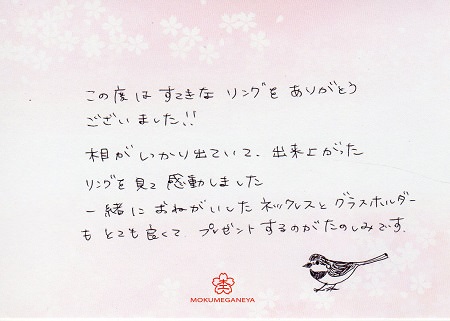 この度は すてきな リングを ありがとう
ございました!!
相がしっかり出ていて、出来上がった
リングを見て 感動しました
一緒に おねがいした ネックレスと グラスホルダー
も とても良くて プレゼントするのが たのしみです.
MOKUMEGANEYA